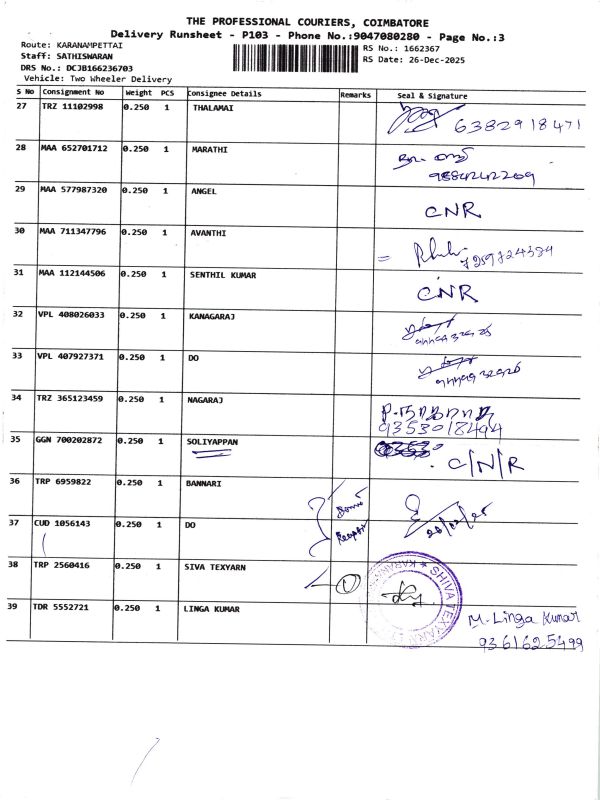 THE PROFESSIONAL COURIERS, COIMBATORE
Delivery Runsheet - P103 - Phone No.:9047080280 - Page No.:3
Route: KARANAMPETTAI
RS No.: 1662367
Staff: SATHISWARAN
RS Date: 26-Dec-2025
DRS No.: DCJB166236703
Vehicle: Two Wheeler Delivery
S No Consignment No Weight PCS Consignee Details Remarks Seal & Signature
27 TRZ 11102998 0.250 1 THALAMAI 6382918471
28 MAA 652701712 0.250 1 MARATHI
29 MAA 577987320 0.250 1 ANGEL CNR
30 MAA 711347796 0.250 1 AVANTHI
31 MAA 112144506 0.250 1 SENTHIL KUMAR CNR
32 VPL 408026033 0.250 1 KANAGARAJ
33 VPL 407927371 0.250 1 DO
34 TRZ 365123459 0.250 1 NAGARAJ
9353018494
35 GGN 700202872 0.250 1 SOLIYAPPAN C/N/R
36 TRP 6959822 0.250 1 BANNARI
37 CUD 1056143 0.250 1 DO
38 TRP 2560416 0.250 1 SIVA TEXYARN
39 TDR 5552721 0.250 1 LINGA KUMAR M. Linga Kumar
9361625499